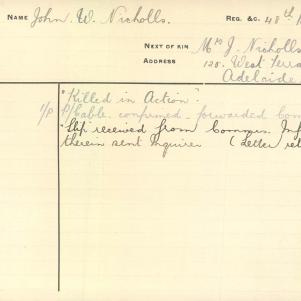 NAME John W. Nicholls. REG. &C. 48th
NEXT OF KIN Mrs J. Nicholls
ADDRESS 125. West Terra
Adelaide
"Killed in Action"
Cable confirmed - forwarded
Slip received from Commrs. Inf
therein sent Inquirer (Letter ret